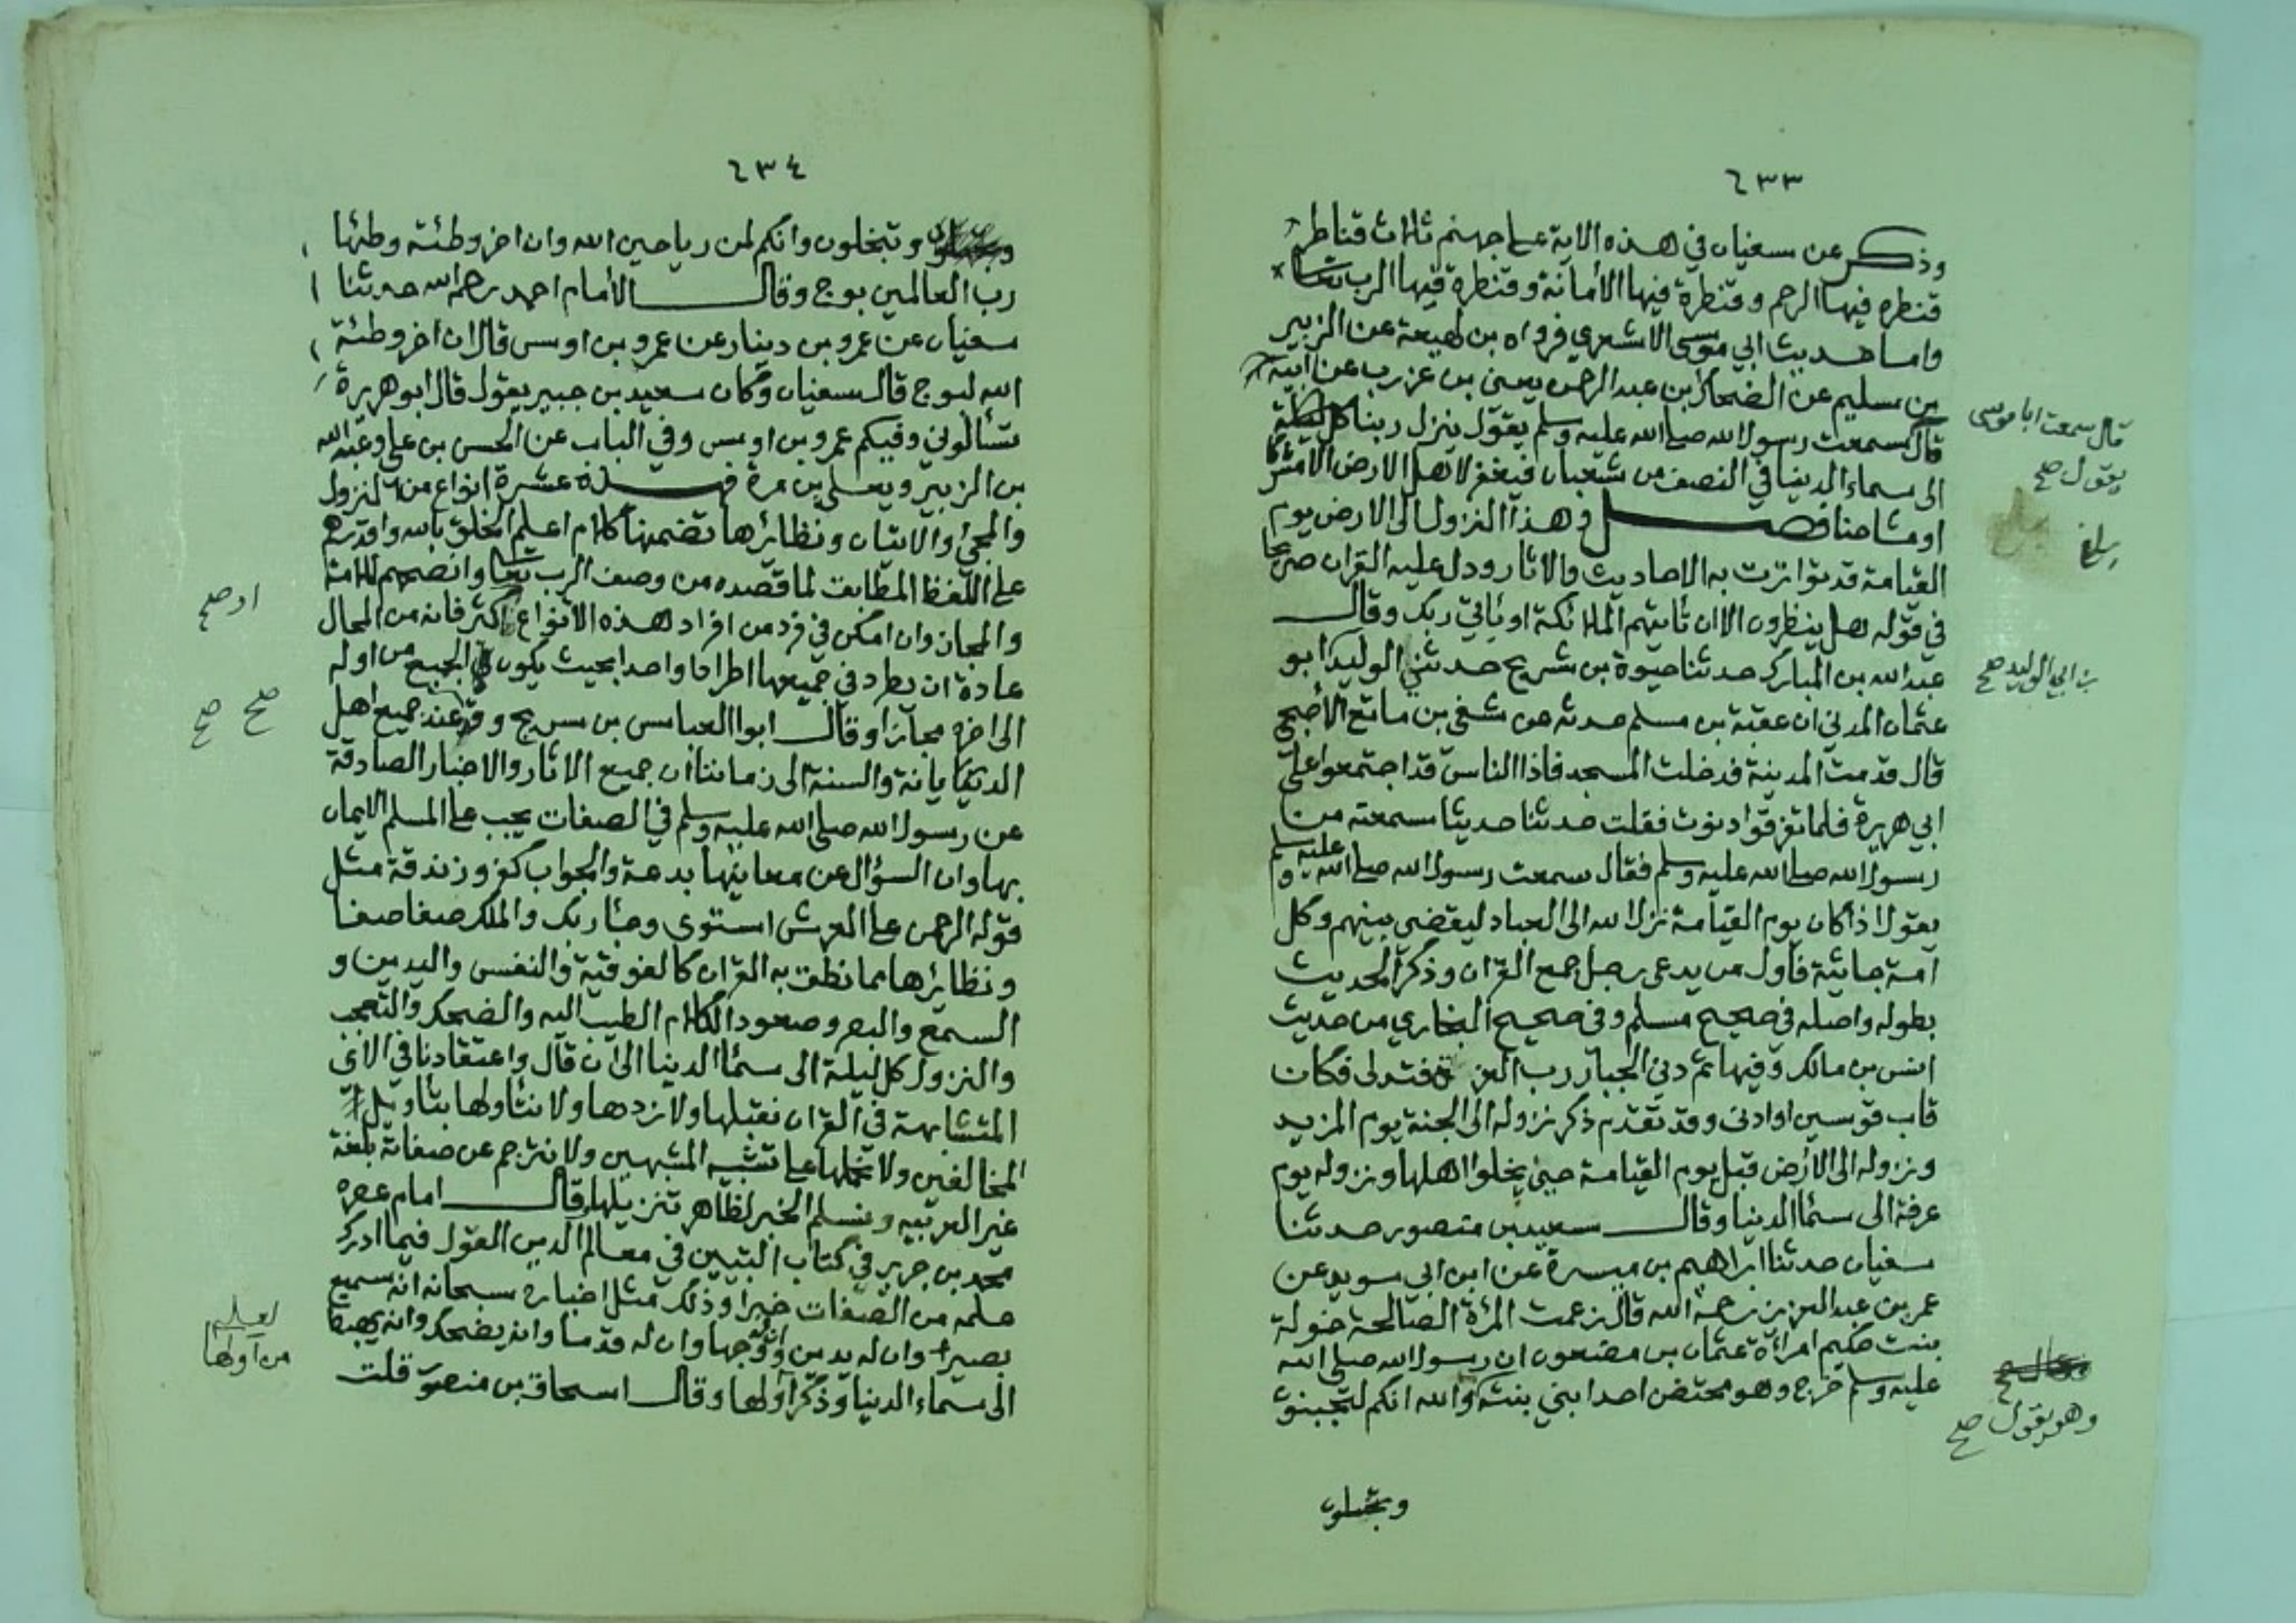 ٦٣٣
وذكر عن سفيان في هذه الاية على جهنم ثلاث قناطر
قنطره فيها الرحم وقنطرة فيها الأمانة وقنطرة فيها الرب تعالى
واما حديث ابي موسى الاشعري فرواه بن لهيعة عن الزبير
بن سليم عن الضحاك بن عبد الرحمن يعني بن عزرب عن ابيه
قال سمعت رسول الله صلى الله عليه وسلم يقول ينزل ربنا كل ليلة
الى سماء الدنيا في النصف من شعبان فيغفر لاهل الارض الا مشركا
او مشاحنا فصل في هذا النزول الى الارض يوم
القيامة قد تواترت به الاحاديث والاثار ودل عليه القران صريحا
في قوله هل ينظرون الا ان تأتيهم الملائكة او يأتي ربك وقال
عبد الله بن المبارك حدثنا حيوة بن شريح حدثني الوليد ابو
عثمان المدني ان عقبة بن مسلم حدثه عن شفي بن ماتع الأصبحي
قال قدمت المدينة فدخلت المسجد فاذا الناس قد اجتمعوا على
ابي هريرة فلما تفرقوا دنوت فقلت حدثنا حديثا سمعته من
رسول الله صلى الله عليه وسلم فقال سمعت رسول الله صلى الله عليه وسلم
يقول اذا كان يوم القيامة نزل الله الى العباد ليقضي بينهم وكل
امة جاثية فأول من يدعى رجل جمع القران وذكر الحديث
بطوله واصله في صحيح مسلم وفي صحيح البخاري من حديث
انس بن مالك وفيها ثم دنى الجبار رب العزة فتدلى فكان
قاب قوسين او ادنى وقد تقدم ذكر نزوله الى الجنة يوم المزيد
ونزوله الى الأرض قبل يوم القيامة حين يخلوا اهلها ونزوله يوم
عرفة الى سمأ الدنيا وقال سعيد بن منصور حدثنا
سفيان حدثنا ابراهيم بن ميسرة عن ابن ابي سويد عن
عمر بن عبد العزيز رحمة الله قال زعمت المرأة الصالحة خولة
بنت حكيم امرأة عثمان بن مضعون ان رسول الله صلى الله
عليه وسلم خرج وهو محتضن احد ابني بنته والله انكم لتجبنون
قال سمعت ابا موسى
يقول صح
بلغ
بن ابي الوليد صح
وهو يقول صح
٦٣٤
وتبخلون وانكم لمن رياحين الله وان اخر وطئة وطئها
رب العالمين بوج وقال الأمام احمد رحمه الله حدثنا
سفيان عن عمرو بن دينار عن عمرو بن اوس قال ان اخر وطئة
الله لبوج قال سفيان وكان سعيد بن جبير يقول قال ابو هريرة
تسألوني وفيكم عمرو بن اوس وفي الباب عن الحسن بن علي وعبد الله
بن الزبير ويعلى بن مرة فهذه عشرة انواع من النزول
والمجئ والاتيان ونظائرها تضمنها كلام اعلم الخلق بالله واقدرهم
على اللفظ المطابق لما قصده من وصف الرب تعالى وانصحهم للامة
والمجاز وان امكن في فرد من افراد هذه الانواع اكثر فانه من المحال
عادة ان يطرد في جميعها اطرادا واحدا بحيث يكون الجميع من اوله
الى اخره مجازا وقال ابوا العباس بن سريج وقد عند جميع اهل
الديانة والسنة الى زماننا ان جميع الاثار والاخبار الصادقة
عن رسول الله صلى الله عليه وسلم في الصفات يجب على المسلم الايمان
بها وان السؤال عن معانيها بدعة والجواب كفر وزندقة مثل
قوله الرحمن على العرش استوى وجأ ربك والملك صفا صفا
ونظايرها مما نطق به القران كالفوقية والنفس واليدين و
السمع والبصر وصعود الكلام الطيب اليه والضحك والتعجب
والنزول كل ليلة الى سمأ الدنيا الى ان قال واعتقادنا في الآي
المتشابهة في القران نقبلها ولا نردها ولا نتأولها بتأويل
المخالفين ولا نحملها على تشبيه المشبهين ولا نترجم عن صفاته بلغة
غير العربيه ونسلم الخبر لظاهر تنزيلها وقال امام عصره
محمد بن جرير في كتاب التبيين في معالم الدين القول فيما ادرك
علمه من الصفات خبرا وذلك مثل اخباره سبحانه انه سميع
بصير وان له يدين ووجها وان له قدما وانه يضحك وانه يهبط
الى سماء الدنيا وذكر اولها وقال اسحاق بن منصور قلت
او صح
صح صح
لعله
من اولها